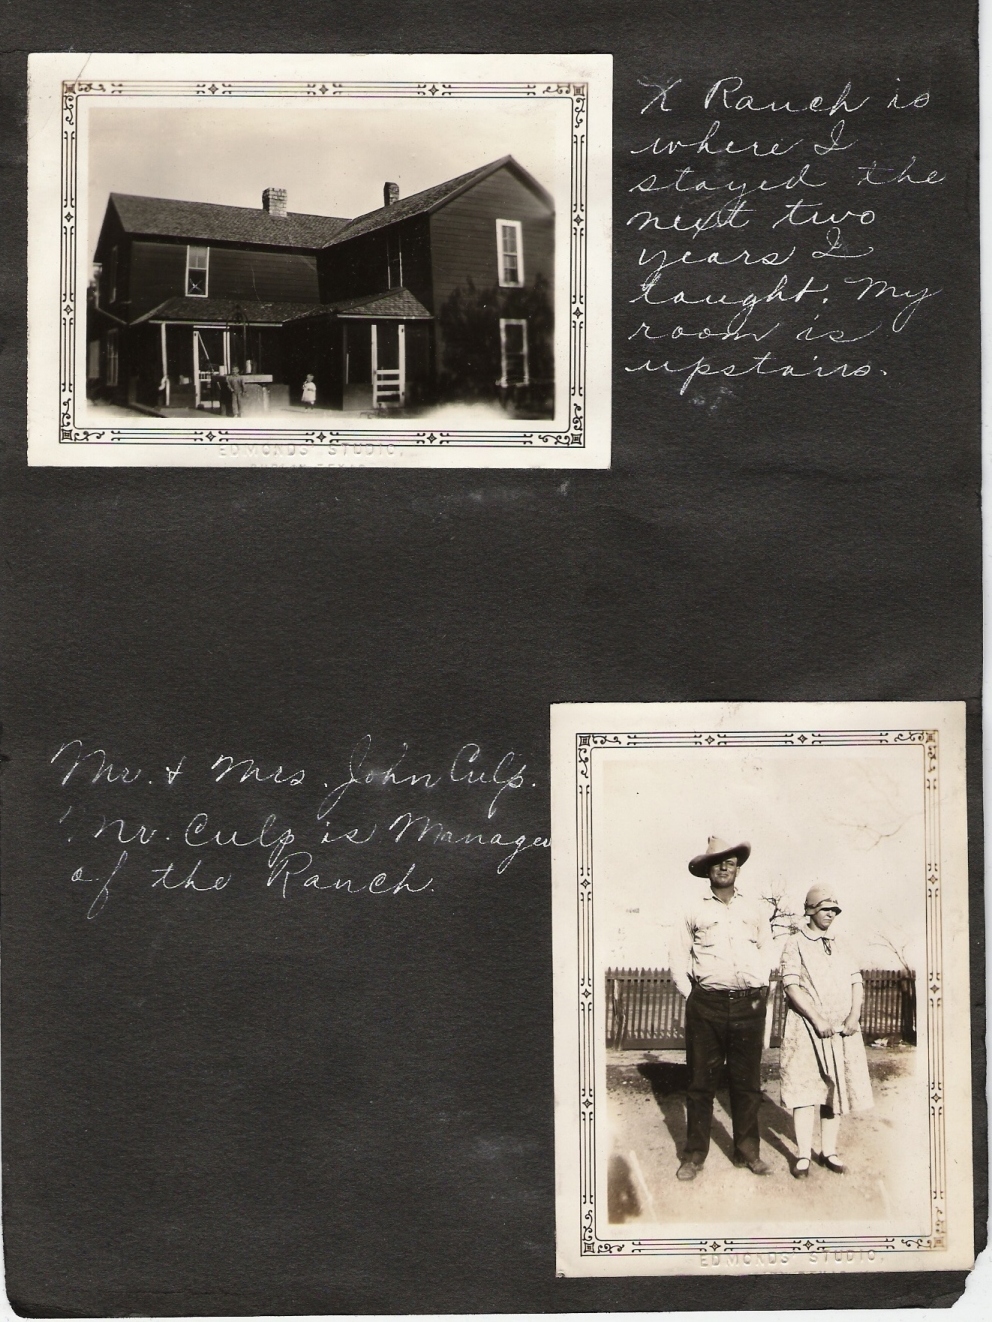 X Ranch is
where I
stayed the
next two
years I
taught. My
room is
upstairs.
EDMONDS STUDIO,
TEXAS
Mr. & Mrs. John Culp.
Mr. Culp is Manager
of the Ranch.
EDMONDS STUDIO,